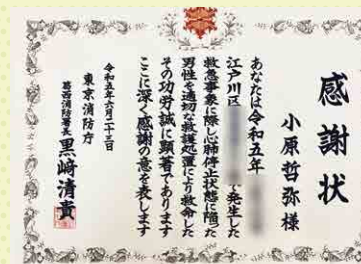 感謝状
小原哲弥様
あなたは令和五年
江戸川区 で発生した
救急事象に際し心肺停止状態に陥った
男性を適切な救護処置により救命した
その功労誠に顕著であります
ここに深く感謝の意を表します
令和五年六月二十三日
東京消防庁
葛西消防署長 黒崎清貴